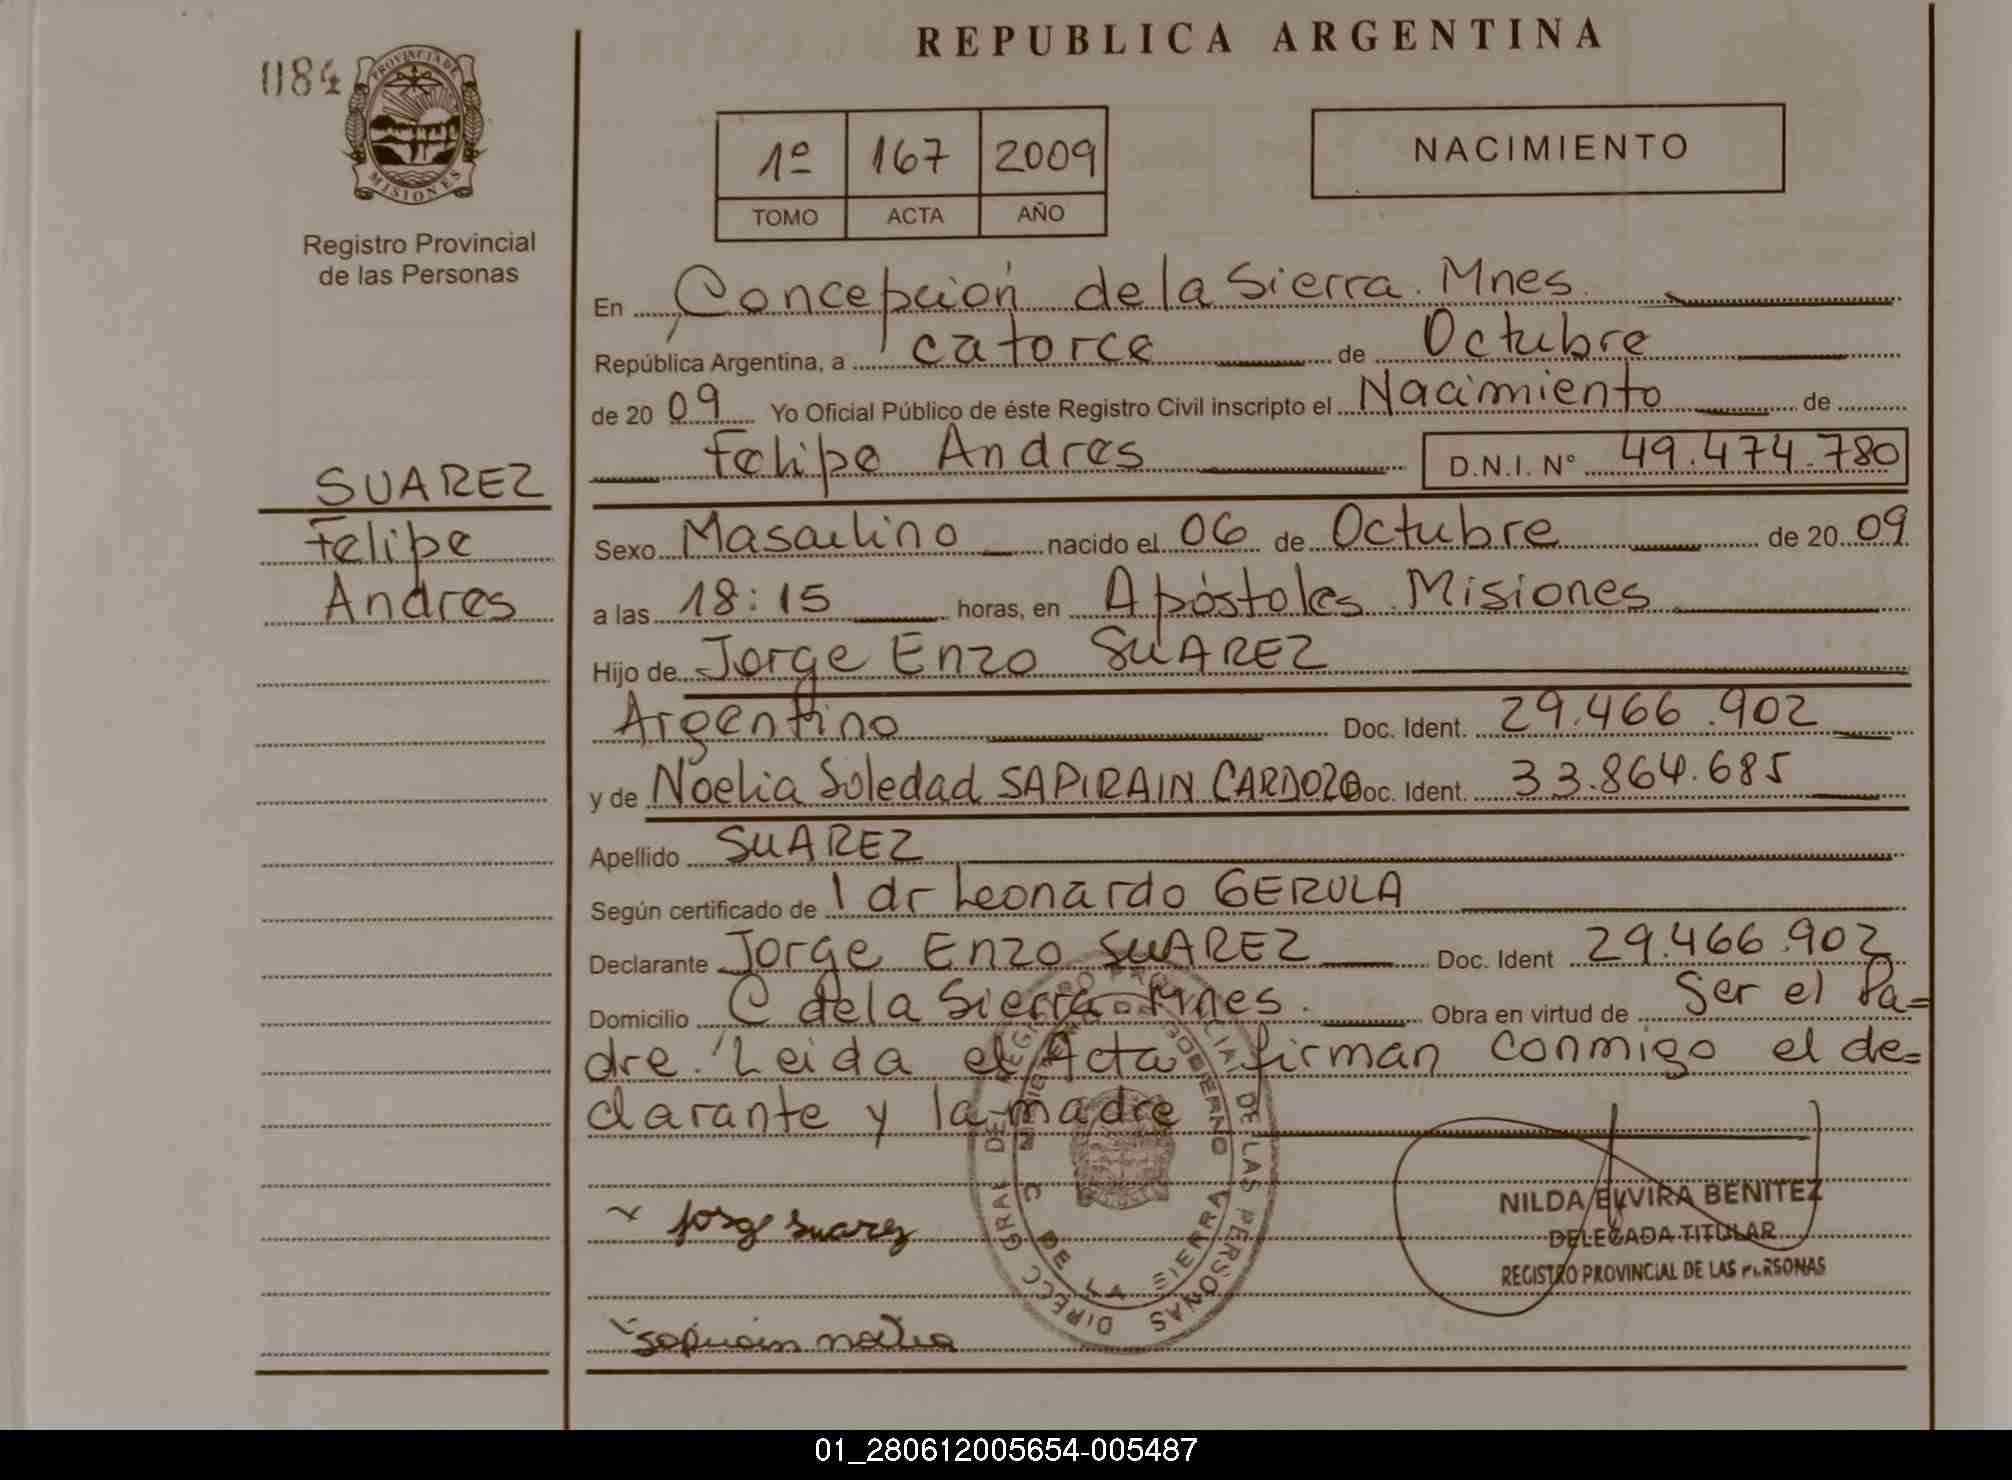 REPUBLICA ARGENTINA
1184
PROVINCIA DE
MISIONES
Registro Provincial
de las Personas
1º 167 2009
TOMO ACTA AÑO
NACIMIENTO
En Concepción de la Sierra. Mnes.
República Argentina, a catorce de Octubre
de 20 09 Yo Oficial Público de éste Registro Civil inscripto el Nacimiento de
Felipe Andres D.N.I. Nº 49.474.780
SUAREZ
Felipe
Andres
Sexo Masculino nacido el 06 de Octubre de 20 09
a las 18:15 horas, en Apóstoles Misiones
Hijo de Jorge Enzo SUAREZ
Argentino Doc. Ident. 29.466.902
y de Noelia Soledad SAPIRAIN CARDOZO Doc. Ident. 33.864.685
Apellido SUAREZ
Según certificado de l dr Leonardo GERULA
Declarante Jorge Enzo SUAREZ Doc. Ident 29.466.902
Domicilio C de la Sierra Mnes. Obra en virtud de Ser el Pa=
dre. Leida el Acta firman conmigo el de=
clarante y la madre
Jorge Suarez
Sapirain Noelia
DIRECC GRAL DEL REGISTRO PROVINCIAL DE LAS PERSONAS
MINISTERIO DE GOBIERNO
C DE LA SIERRA
NILDA ELVIRA BENITEZ
DELEGADA TITULAR
REGISTRO PROVINCIAL DE LAS PERSONAS
01_280612005654-005487